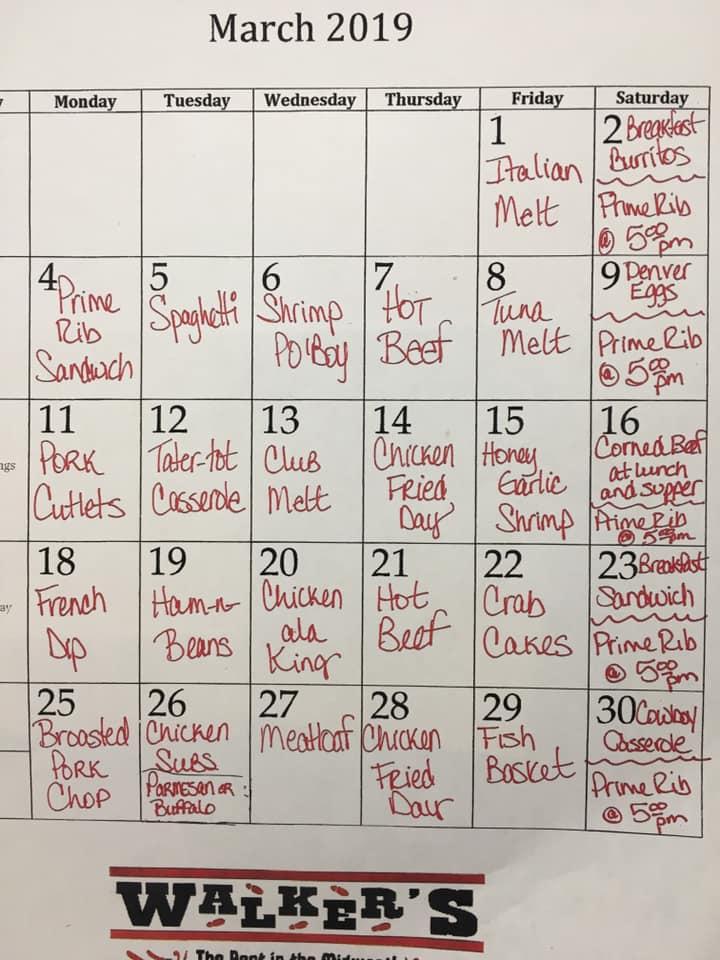 March 2019
Monday Tuesday Wednesday Thursday Friday Saturday
1
Italian
Melt
2 Breakfast
Burritos
Prime Rib
@ 5:00 pm
4
Prime
Rib
Sandwich
5
Spaghetti
6
Shrimp
PO'Boy
7
HOT
Beef
8
Tuna
Melt
9 Denver
Eggs
Prime Rib
@ 5:00
pm
11
PORK
Cutlets
12
Tater-tot
Casserole
13
Club
Melt
14
Chicken
Fried
Day
15
Honey
Garlic
Shrimp
16
Corned Beef
at lunch
and supper
Prime Rib
@ 5:00pm
18
French
Dip
19
Ham-n-
Beans
20
Chicken
ala
King
21
Hot
Beef
22
Crab
Cakes
23 Breakfast
Sandwich
Prime Rib
@ 5:00
pm
25
Broasted
PORK
CHOP
26
Chicken
Subs
PARMESAN OR
Buffalo
27
Meatloaf
28
Chicken
Fried
Day
29
Fish
Basket
30 Cowboy
Casserole
Prime Rib
@ 5:00
pm
WALKER'S
in the